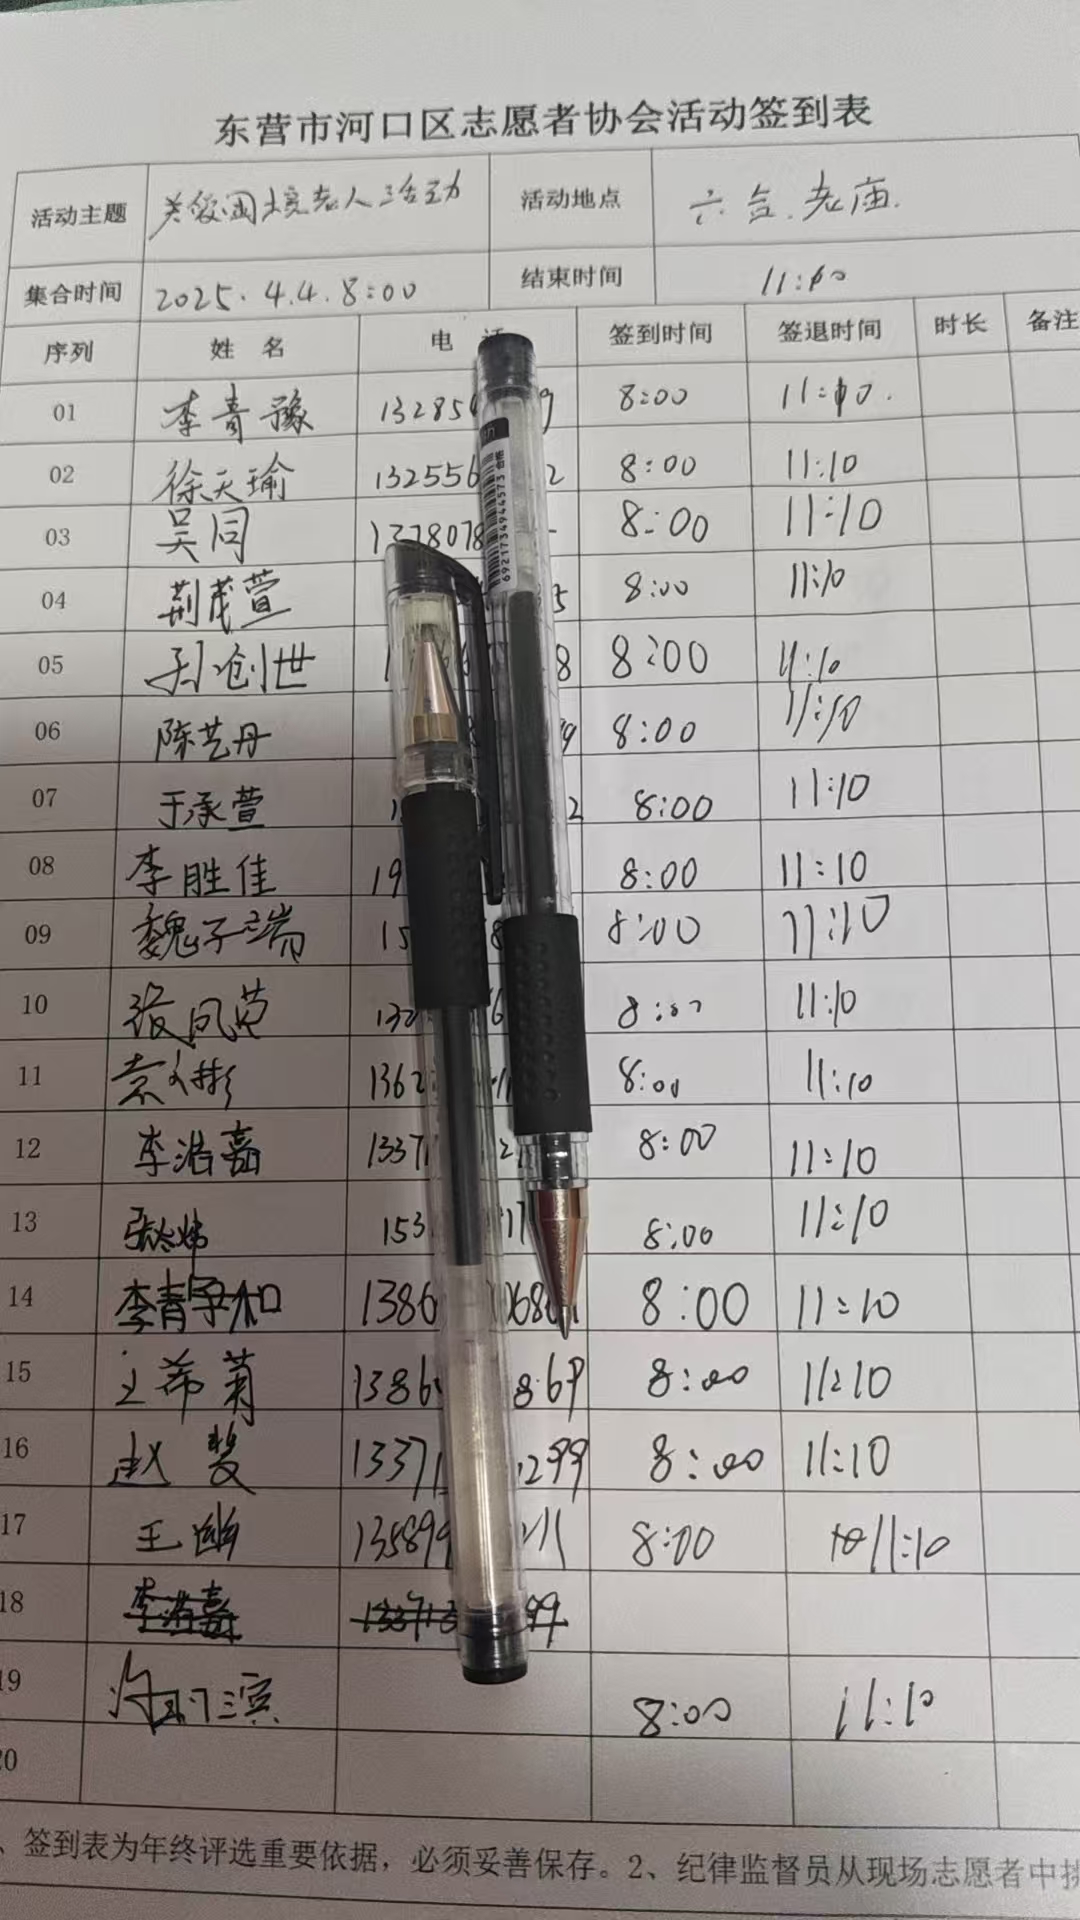 东营市河口区志愿者协会活动签到表
活动主题 关爱困境老人活动 活动地点 六合.老庙.
集合时间 2025.4.4.8:00 结束时间 11:10
序列 姓名 电 签到时间 签退时间 时长 备注
01 李青豫 13285 9 8:00 11:10.
02 徐天瑜 132556 2 8:00 11:10
03 吴同 1378078 8:00 11:10
04 荆茂萱 5 8:00 11:10
05 孙创世 8 8:00 11:10
06 陈艺丹 9 8:00 11:10
07 于承萱 2 8:00 11:10
08 李胜佳 19 8:00 11:10
09 魏子瑞 15 8 8:00 11:10
10 张凤 132 6 8:00 11:10
11 袁文彬 1362 8:00 11:10
12 李浩嘉 1337 2 8:00 11:10
13 张 153 17 8:00 11:10
14 李青 和 1386 068 8:00 11:10
15 王希菊 1386 869 8:00 11:10
16 赵斐 1337 299 8:00 11:10
17 王 13589 11 8:00 11:10
18 李浩嘉 13371 99
19 滨 8:00 11:10
20
、签到表为年终评选重要依据，必须妥善保存。2、纪律监督员从现场志愿者中挑
6921734944573